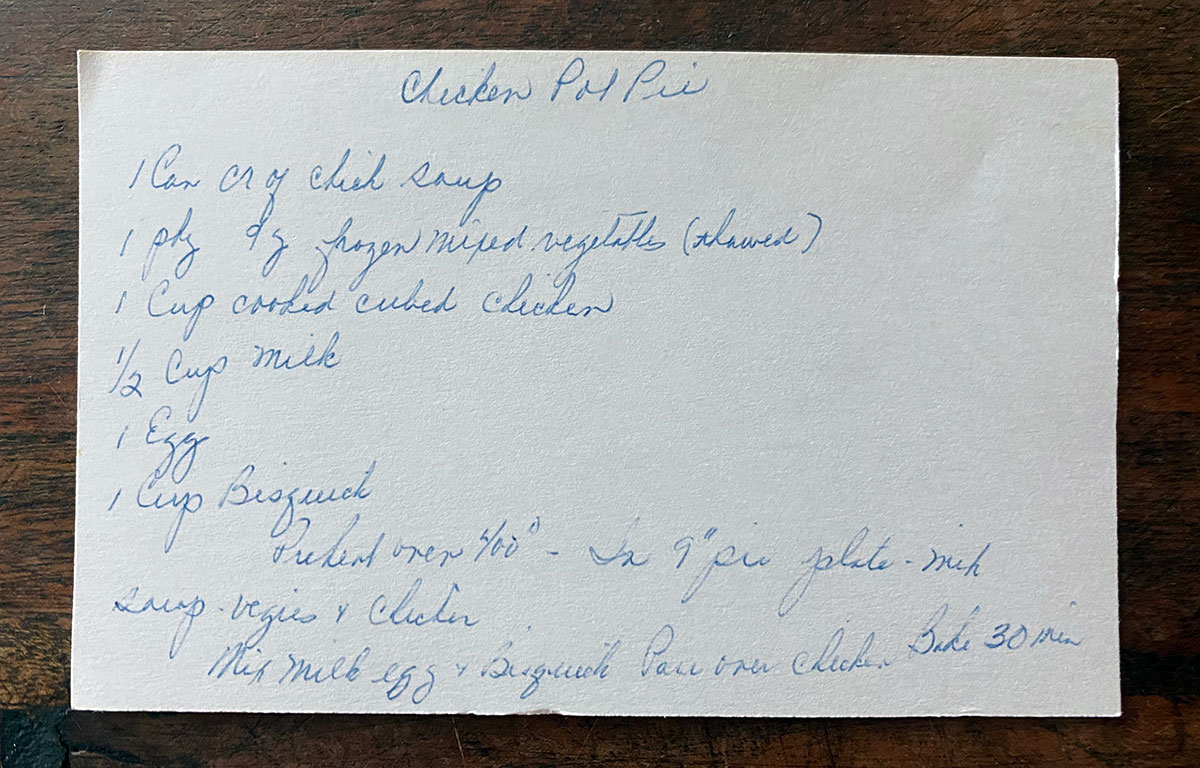 Chicken Pot Pie
1 Can cr of chick soup
1 pkg 9 z frozen mixed vegetables (thawed)
1 Cup cooked cubed chicken
1/2 Cup Milk
1 Egg
1 Cup Bisquick
Preheat oven 400° - In 9" pie plate - mix
soup - vegies & Chicken
Mix Milk egg & Bisquick Pour over chicken Bake 30 min